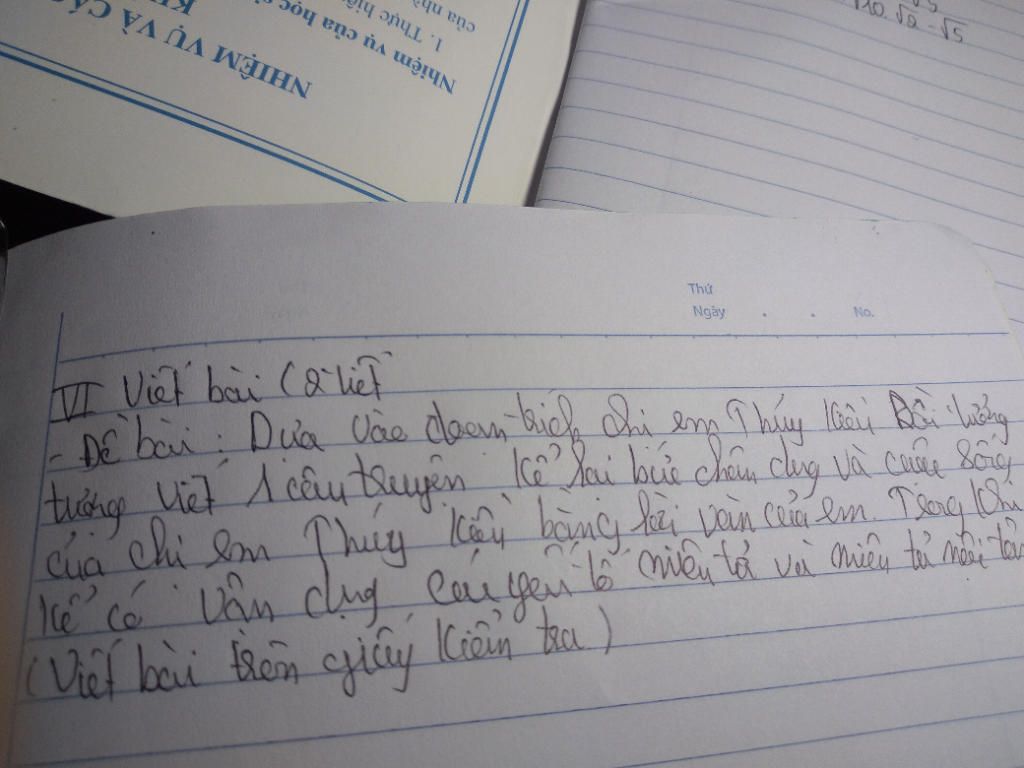 NHIỆM VỤ VÀ CÁC
Nhiệm vụ của học
1. Thực hiện
của nhà
√2 - √5
Thứ
Ngày . . No.
VI Viết bài (2 tiết
- Đề bài: Dựa vào đoạn trích chị em Thúy Kiều tưởng
tượng viết 1 câu truyện kể lại bức chân dung và cuộc sống
của chị em Thúy Kiều bằng lời văn của em. Trong khi
kể có vận dụng các yếu tố miêu tả và miêu tả nội tâm
(Viết bài trên giấy kiểm tra)